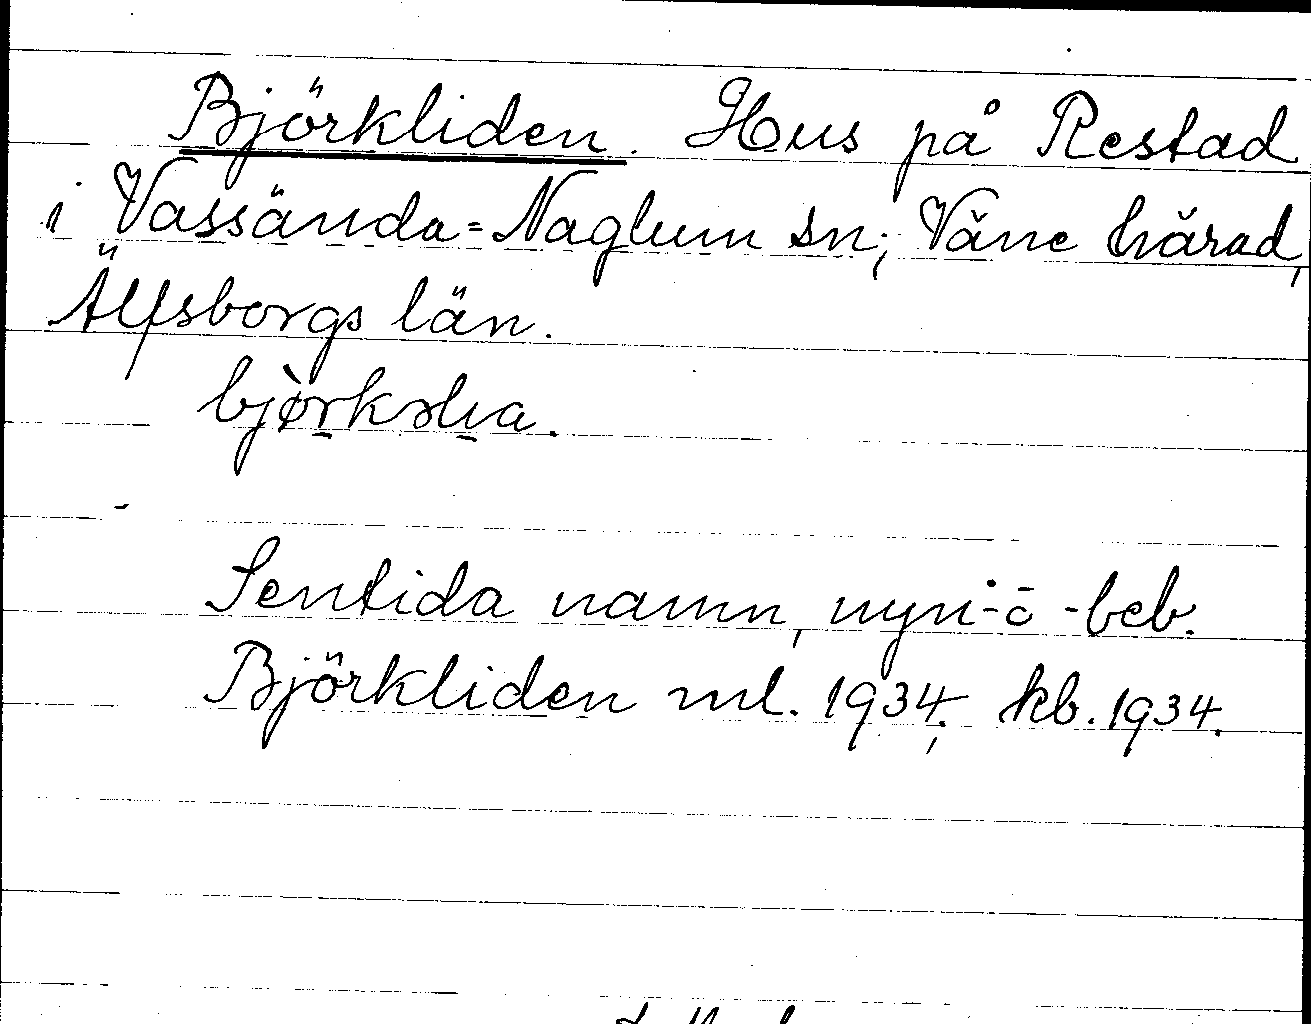 Björkliden. Hus på Restad
i Vassända=Naglum sn; Väne härad,
Älfsborgs län.
Sentida namn,
Björkliden ml. 1934; kb. 1934.